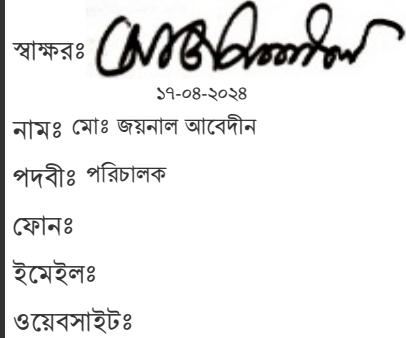 স্বাক্ষরঃ
১৭-০৪-২০২৪
নামঃ মোঃ জয়নাল আবেদীন
পদবীঃ পরিচালক
ফোনঃ
ইমেইলঃ
ওয়েবসাইটঃ